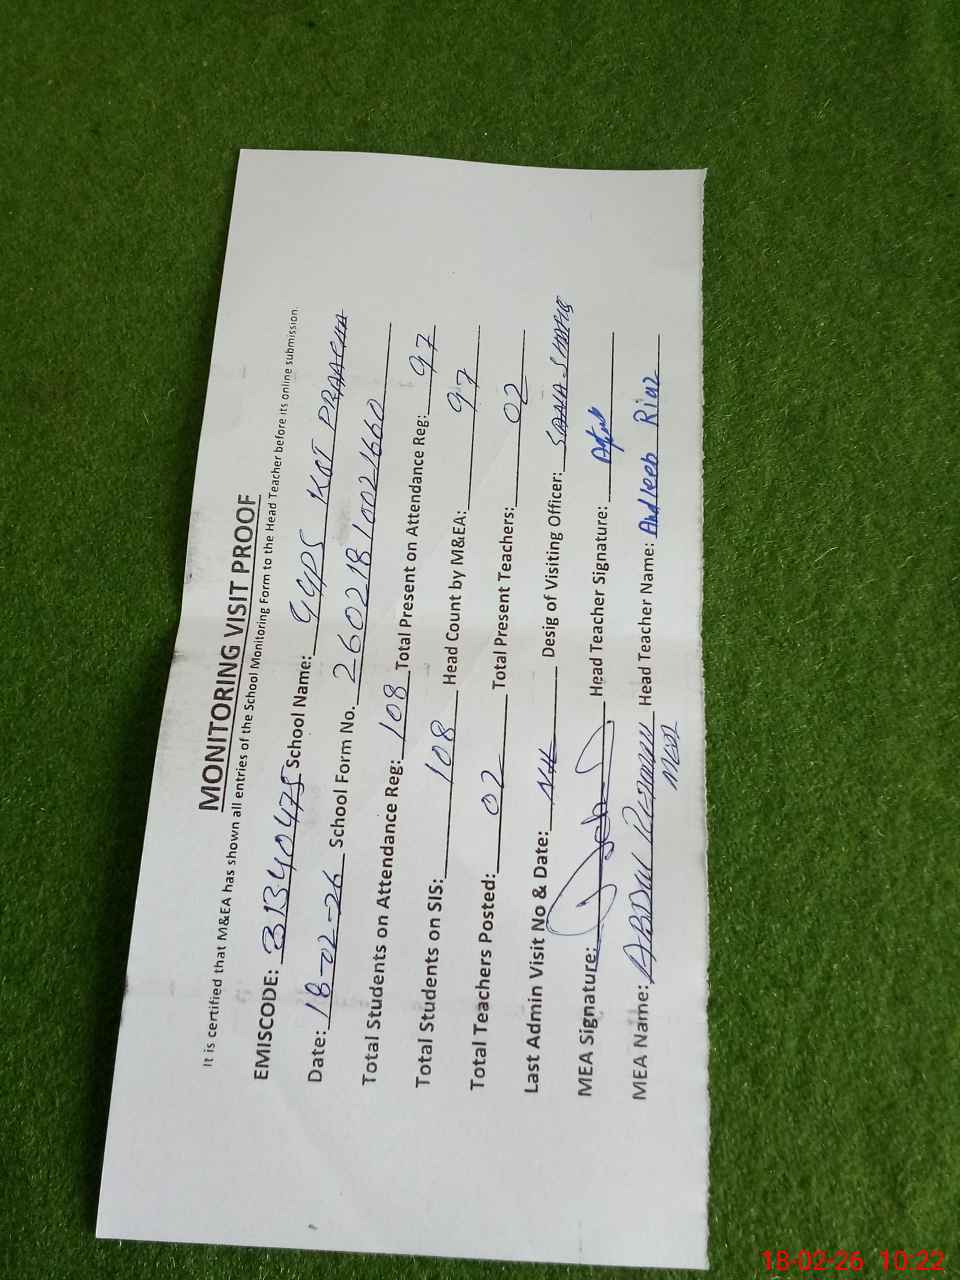 MONITORING VISIT PROOF
It is certified that M&EA has shown all entries of the School Monitoring Form to the Head Teacher before its online submission.
EMISCODE: 31340475 School Name: GGPS KOT PRAACHA
Date: 18-02-26 School Form No. 26021810021660
Total Students on Attendance Reg: 108 Total Present on Attendance Reg: 97
Total Students on SIS: 108 Head Count by M&EA: 97
Total Teachers Posted: 02 Total Present Teachers: 02
Last Admin Visit No & Date: Nil Desig of Visiting Officer: SANA SHAFIQ
MEA Signature: Head Teacher Signature:
MEA Name: ABDUL Head Teacher Name: Andleeb Riaz
18-02-26 10:22